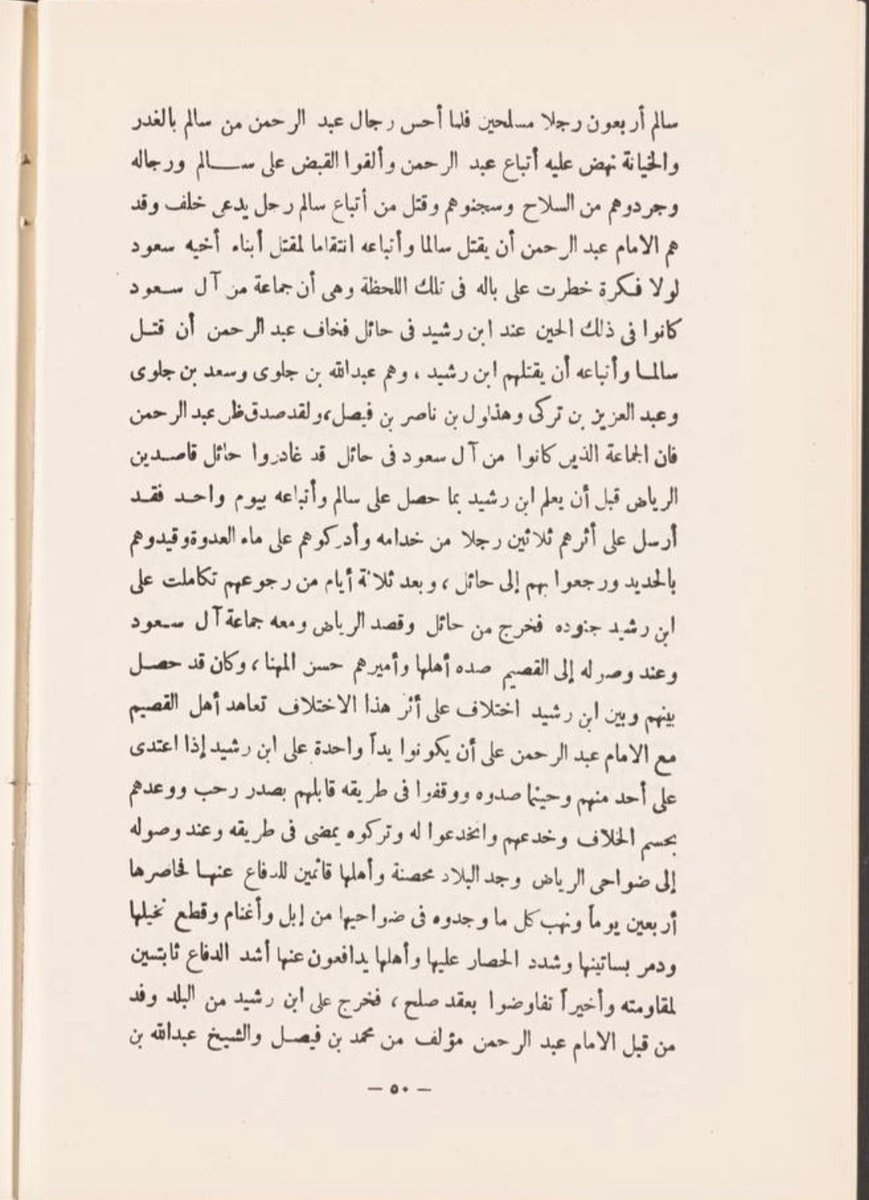 سالم أربعون رجلا مسلحين فلما أحس رجال عبد الرحمن من سالم بالغدر
والخيانة نهض عليه أتباع عبد الرحمن وألقوا القبض على ســـالم ورجاله
وجردوهم من السلاح وسجنوهم وقتل من أتباع سالم رحل يدعى خلف وقد
هم الامام عبد الرحمن أن يقتل سالما وأتباعه انتقاما لمقتل أبناء أخيه سعود
لولا فكرة خطرت على باله فى تلك اللحظة وهى أن جماعة من آل سعود
كانوا فى ذلك الحين عند ابن رشيد فى حائل فخاف عبد الرحمن أن قتل
سالمـا وأتباعه أن يقتلهم ابن رشيد ، وهم عبدالله بن جلوى وسعد بن جلوى
وعبد العزيز بن تركى وهذلول بن ناصر بن فيصل، ولقد صدق ظن عبد الرحمن
فان الجماعة الذين كانوا من آل سعود فى حائل قد غادروا حائل قاصدين
الرياض قبل أن يعلم ابن رشيد بما حصل على سالم وأتباعه بيوم واحد فقد
أرسل على أثرهم ثلاثين رجلا من خدامه وأدركوهم على ماء العدوة وقيدوهم
بالحديد ورجعوا بهم إلى حائل ، وبعد ثلاثة أيام من رجوعهم تكاملت على
ابن رشيد جنوده فخرج من حائل وقصد الرياض ومعه جماعة آل سعود
وعند وصوله إلى القصيم صده أهلها وأميرهم حسن المهنا ، وكان قد حصل
بينهم وبين ابن رشيد اختلاف على أثر هذا الاختلاف تعاهد أهل القصيم
مع الامام عبد الرحمن على أن يكونوا يداً واحدة على ابن رشيد إذا اعتدى
على أحد منهم وحينما صدوه ووقفوا فى طريقه قابلهم بصدر رحب ووعدهم
بحسم الخلاف وخدعهم وانخدعوا له وتركوه يمضى فى طريقه وعند وصوله
إلى ضواحى الرياض وجد البلاد محصنة وأهلها قائمين للدفاع عنهـا فحاصرها
أربعين يوماً ونهب كل ما وجدوه فى ضواحيها من إبل وأغنام وقطع نخيلها
ودمر بساتينها وشدد الحصار عليها وأهلها يدافعون عنها أشد الدفاع ثابتسين
لمقاومته وأخيراً تفاوضوا بعقد صلح ، فخرج على ابن رشيد من البلد وفد
من قبل الامام عبد الرحمن مؤلف من محمد بن فيصـل والشيخ عبدالله بن
— ٥٠ —